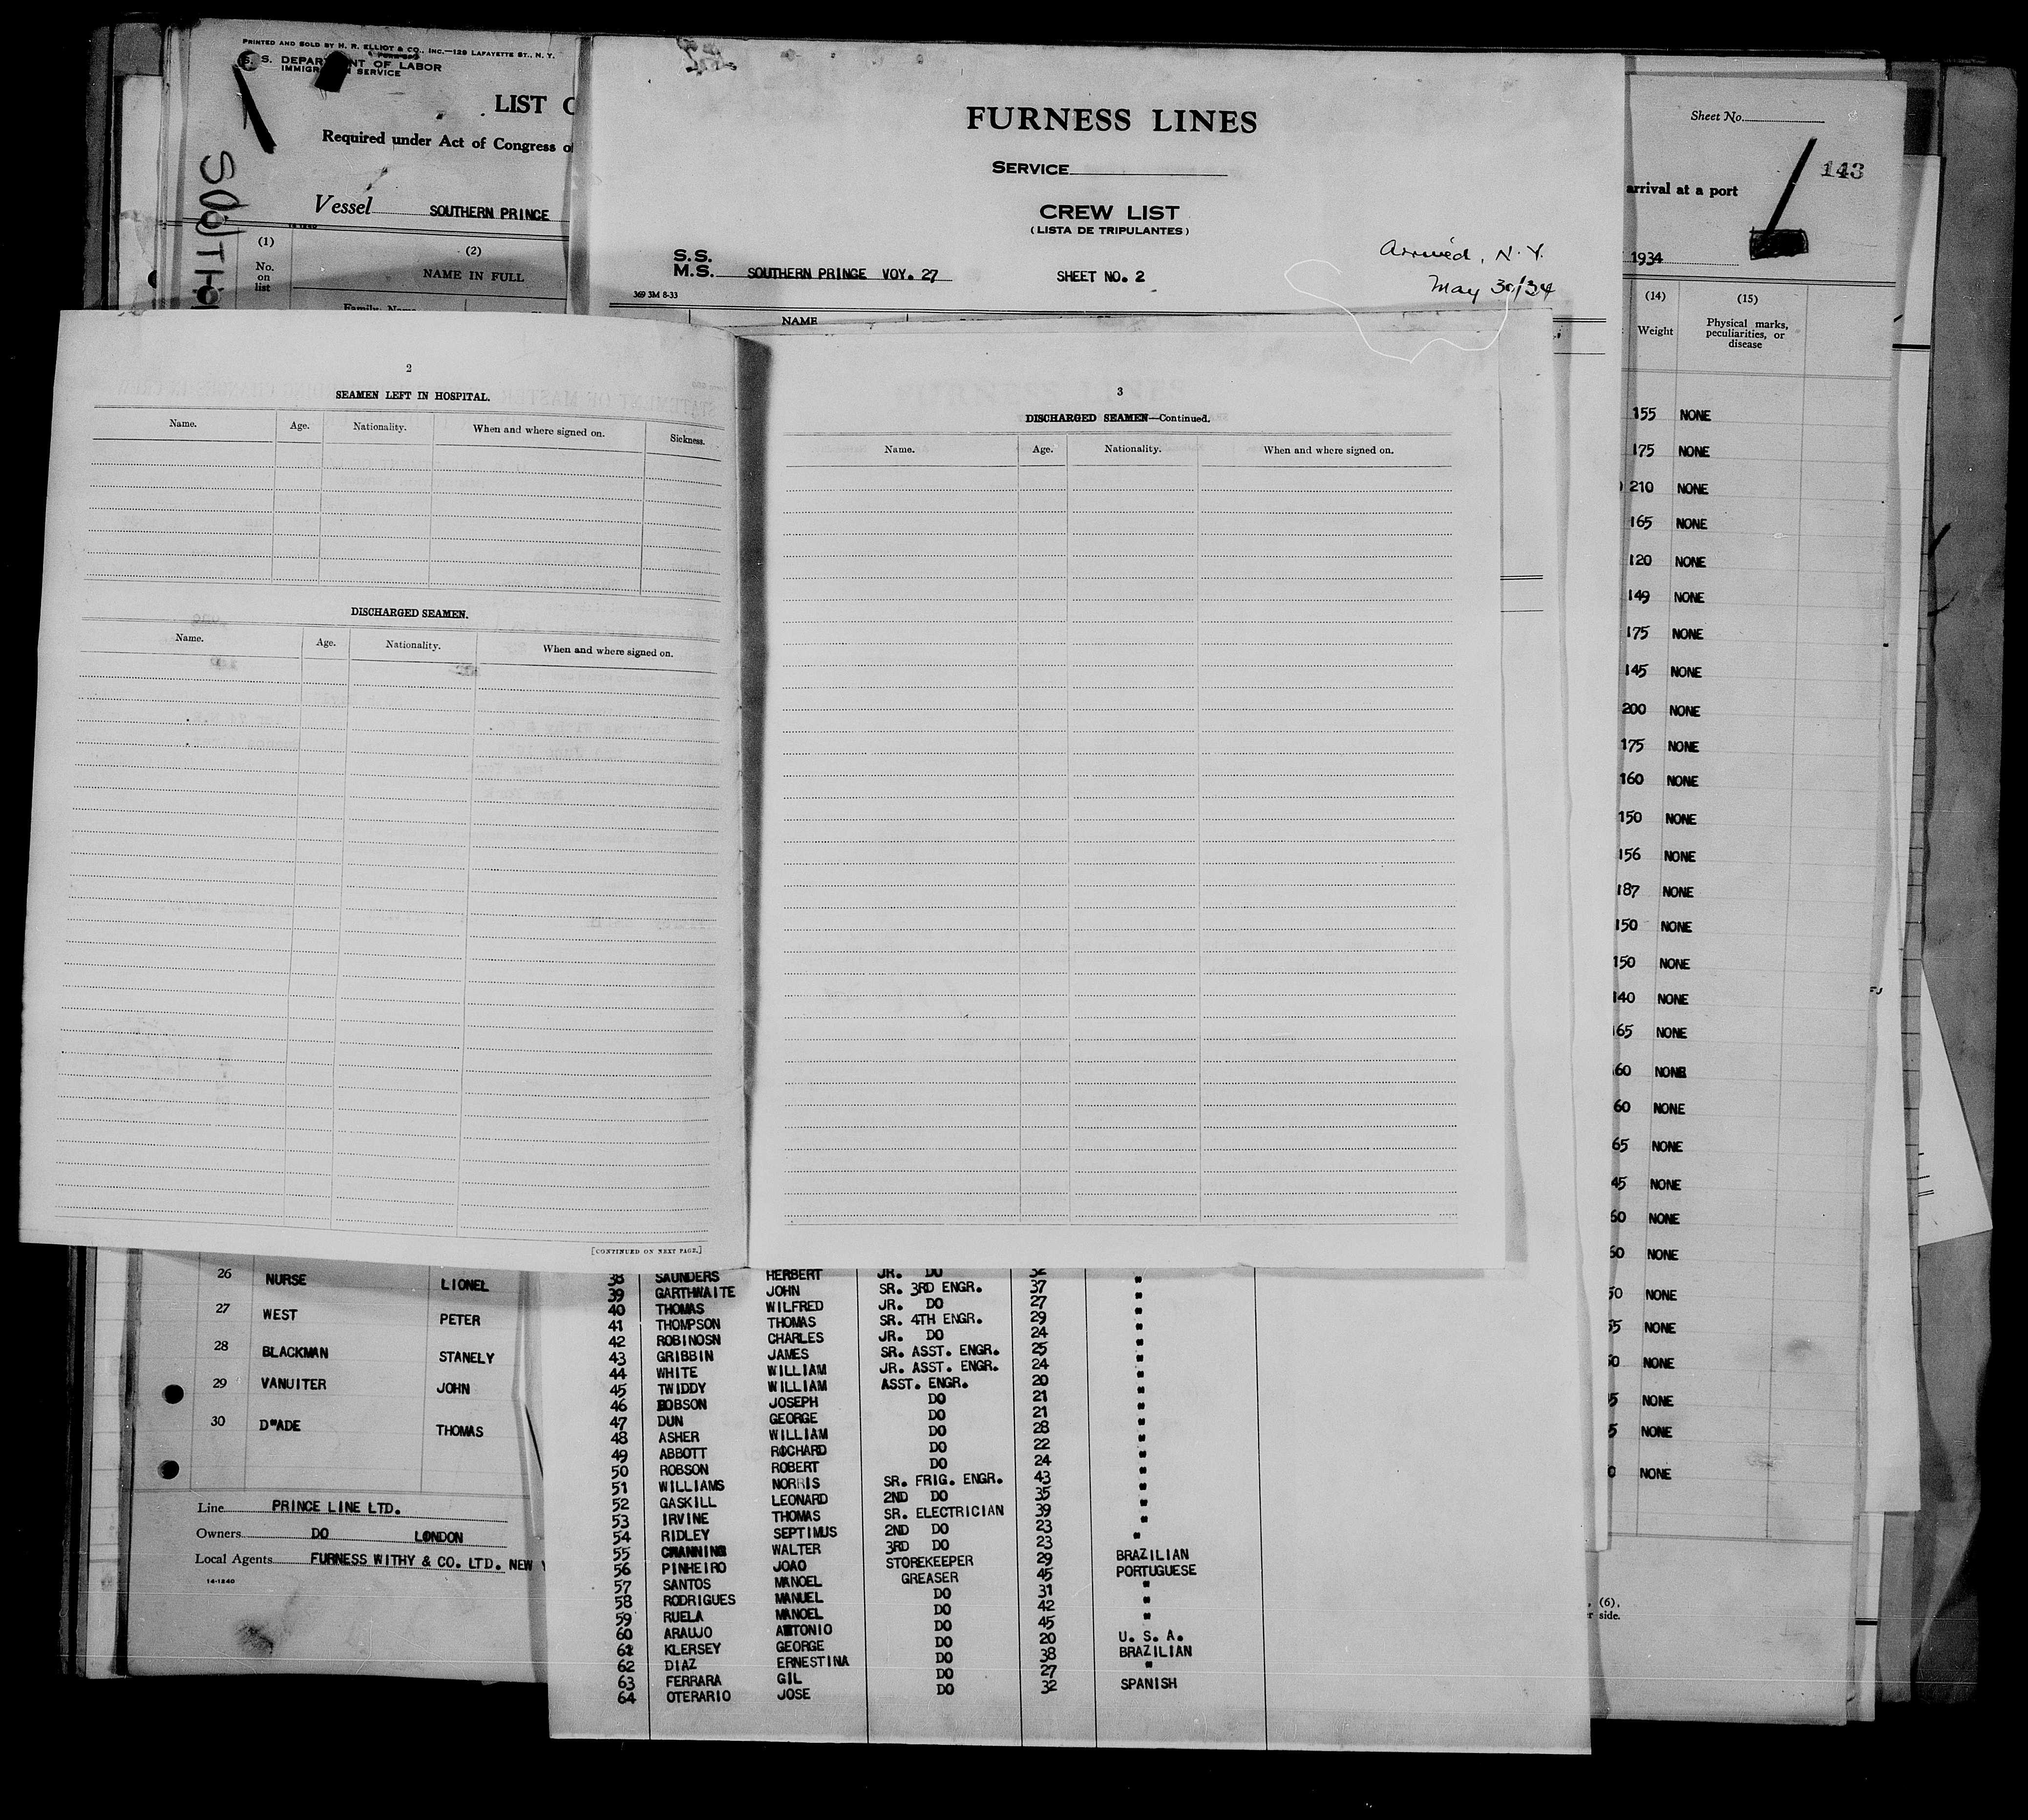 PRINTED AND SOLD BY H. R. ELLIOT & CO., INC.—129 LAFAYETTE ST., N. Y.
S. DEPARTMENT OF LABOR
IMMIGRATION SERVICE
LIST
Required under Act of Congress of
Vessel SOUTHERN PRINCE
(1) (2)
No. on list NAME IN FULL
Family Name
FURNESS LINES
SERVICE
CREW LIST
(LISTA DE TRIPULANTES)
Arrived, N.Y.
S.S.
M.S. SOUTHERN PRINCE VOY. 27 SHEET NO. 2
May 30/34
369 3M 8-33
NAME
Sheet No.
143
arrival at a port
1934
(14) (15)
Weight Physical marks, peculiarities, or disease
155 NONE
175 NONE
210 NONE
165 NONE
120 NONE
149 NONE
175 NONE
145 NONE
200 NONE
175 NONE
160 NONE
150 NONE
156 NONE
187 NONE
150 NONE
150 NONE
140 NONE
65 NONE
60 NONE
60 NONE
65 NONE
45 NONE
50 NONE
50 NONE
50 NONE
55 NONE
50 NONE
5 NONE
5 NONE
0 NONE
, (6),
side.
2
SEAMEN LEFT IN HOSPITAL.
Name. Age. Nationality. When and where signed on. Sickness.
DISCHARGED SEAMEN.
Name. Age. Nationality. When and where signed on.
[CONTINUED ON NEXT PAGE.]
3
DISCHARGED SEAMEN—Continued.
Name. Age. Nationality. When and where signed on.
26 NURSE LIONEL
27 WEST PETER
28 BLACKMAN STANELY
29 VANUITER JOHN
30 D"ADE THOMAS
Line PRINCE LINE LTD.
Owners DO LONDON
Local Agents FURNESS WITHY & CO. LTD. NEW Y
14-1240
38 SAUNDERS HERBERT JR. DO 32 "
39 GARTHWAITE JOHN SR. 3RD ENGR. 37 "
40 THOMAS WILFRED JR. DO 27 "
41 THOMPSON THOMAS SR. 4TH ENGR. 29 "
42 ROBINOSN CHARLES JR. DO 24 "
43 GRIBBIN JAMES SR. ASST. ENGR. 25 "
44 WHITE WILLIAM JR. ASST. ENGR. 24 "
45 TWIDDY WILLIAM ASST. ENGR. 20 "
46 ROBSON JOSEPH DO 21 "
47 DUN GEORGE DO 21 "
48 ASHER WILLIAM DO 28 "
49 ABBOTT RICHARD DO 22 "
50 ROBSON ROBERT DO 24 "
51 WILLIAMS NORRIS SR. FRIG. ENGR. 43 "
52 GASKILL LEONARD 2ND DO 35 "
53 IRVINE THOMAS SR. ELECTRICIAN 39 "
54 RIDLEY SEPTIMUS 2ND DO 23 "
55 CHANNING WALTER 3RD DO 23 "
56 PINHEIRO JOAO STOREKEEPER 29 BRAZILIAN
57 SANTOS MANOEL GREASER 45 PORTUGUESE
58 RODRIGUES MANUEL DO 31 "
59 RUELA MANOEL DO 42 "
60 ARAUJO ANTONIO DO 45 "
61 KLERSEY GEORGE DO 20 U. S. A.
62 DIAZ ERNESTINA DO 38 BRAZILIAN
63 FERRARA GIL DO 27 "
64 OTERARIO JOSE DO 32 SPANISH